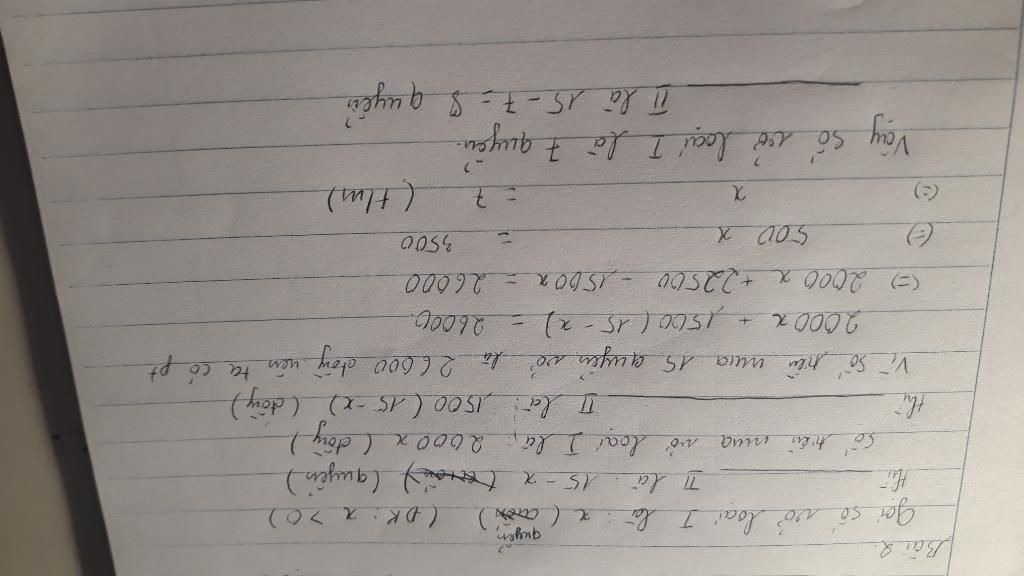 Bài 2.
Gọi số vở loại I là: x (quyển) (ĐK: x > 0)
thì ——— II là: 15 - x (quyển)
Số tiền mua vở loại I là: 2000x (đồng)
thì ——— II là: 1500 (15-x) (đồng)
Vì số tiền mua 15 quyển vở là 26000 đồng nên ta có pt
2000x + 1500 (15-x) = 26000.
(=) 2000x + 22500 - 1500x = 26000
(=) 500 x = 3500
(=) x = 7 (t/m)
Vậy số vở loại I là 7 quyển.
——— II là 15 - 7 = 8 quyển